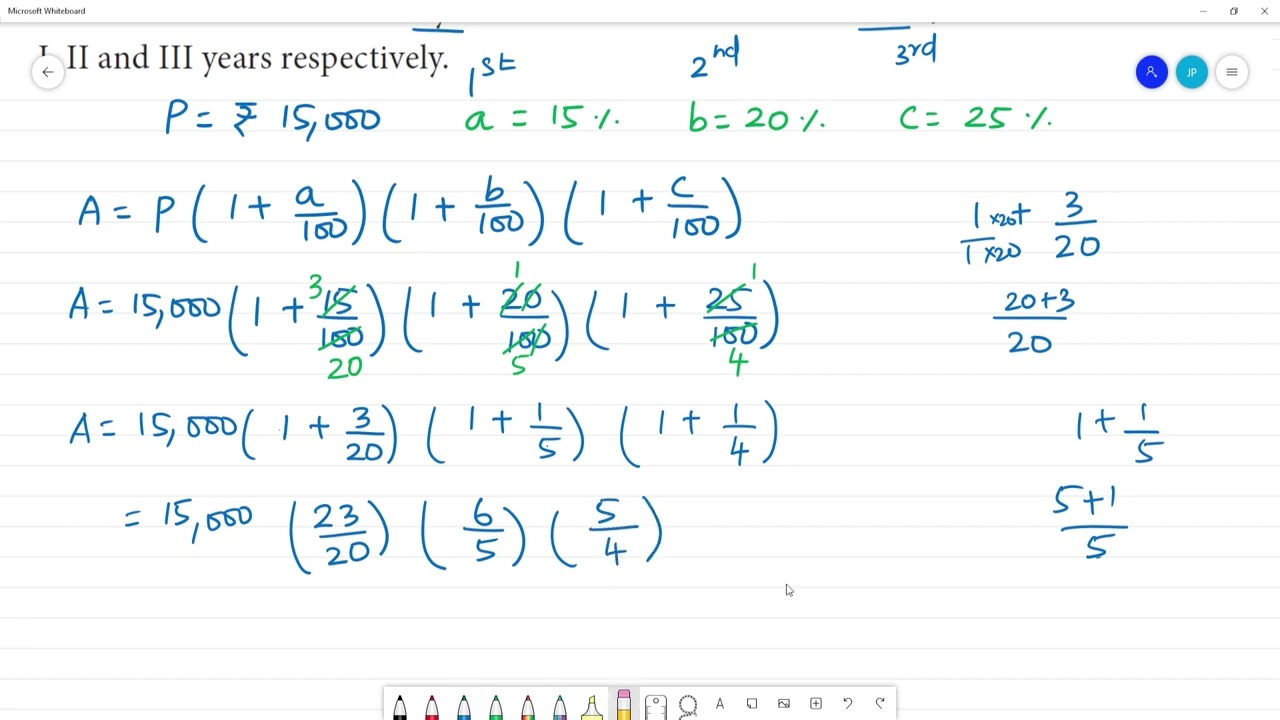 Microsoft Whiteboard
I, II and III years respectively.
1st 2nd 3rd
P = ₹ 15,000 a = 15% b = 20% c = 25%
JP
A = P ( 1 + a/100 ) ( 1 + b/100 ) ( 1 + c/100 )
1×20/1×20 + 3/20
A = 15,000 ( 1 + 15/100 ) ( 1 + 20/100 ) ( 1 + 25/100 )
3 1 1
20 5 4
20+3/20
A = 15,000 ( 1 + 3/20 ) ( 1 + 1/5 ) ( 1 + 1/4 )
1 + 1/5
= 15,000 ( 23/20 ) ( 6/5 ) ( 5/4 )
5+1/5
A